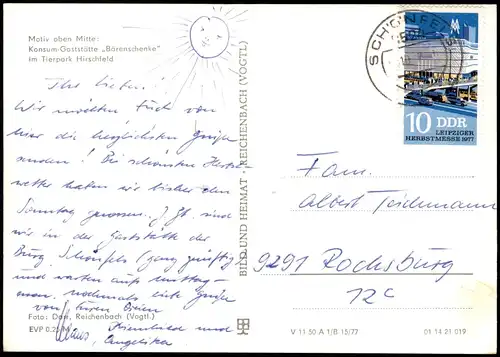 Motiv oben Mitte:
Konsum-Gaststätte „Bärenschenke"
im Tierpark Hirschfeld
Ihr Lieben!
Wir möchten Euch von
hier die herzlichsten Grüße
senden! Bei schönsten Herbst-
wetter haben wir bisher den
Sonntag genossen. J. Zt. sind
wir in der Gaststätte der
Burg Schönfels (ganz zünftig)
und warten aufs Mittag-
essen. Nochmals liebe Grüße
von Euren Dreien
Foto: Darr, Reichenbach (Vogtl.)
EVP 0,25 M
Klaus, und
Angelika
BILD UND HEIMAT · REICHENBACH (VOGTL)
SCHÖNFELS
10 DDR
LEIPZIGER
HERBSTMESSE 1977
Fam.
Albert Teichmann
9291 Rochsburg
12c
V 11 50 A 1/B 15/77 01 14 21 019